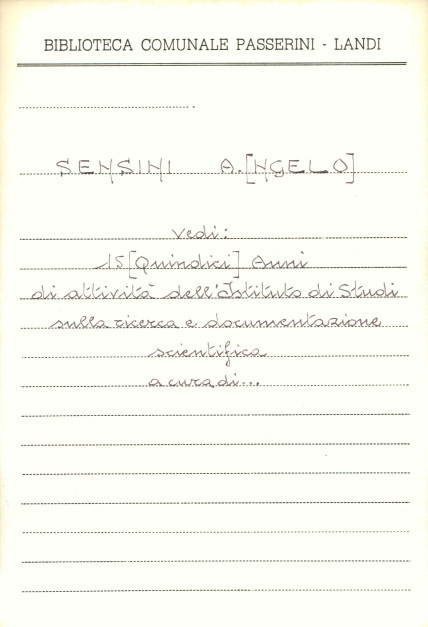 BIBLIOTECA COMUNALE PASSERINI - LANDI
SENSINI A.[NGELO]
vedi:
15 [Quindici] Anni
di attività dell'Istituto di Studi
sulla ricerca e documentazione
scientifica
a cura di...